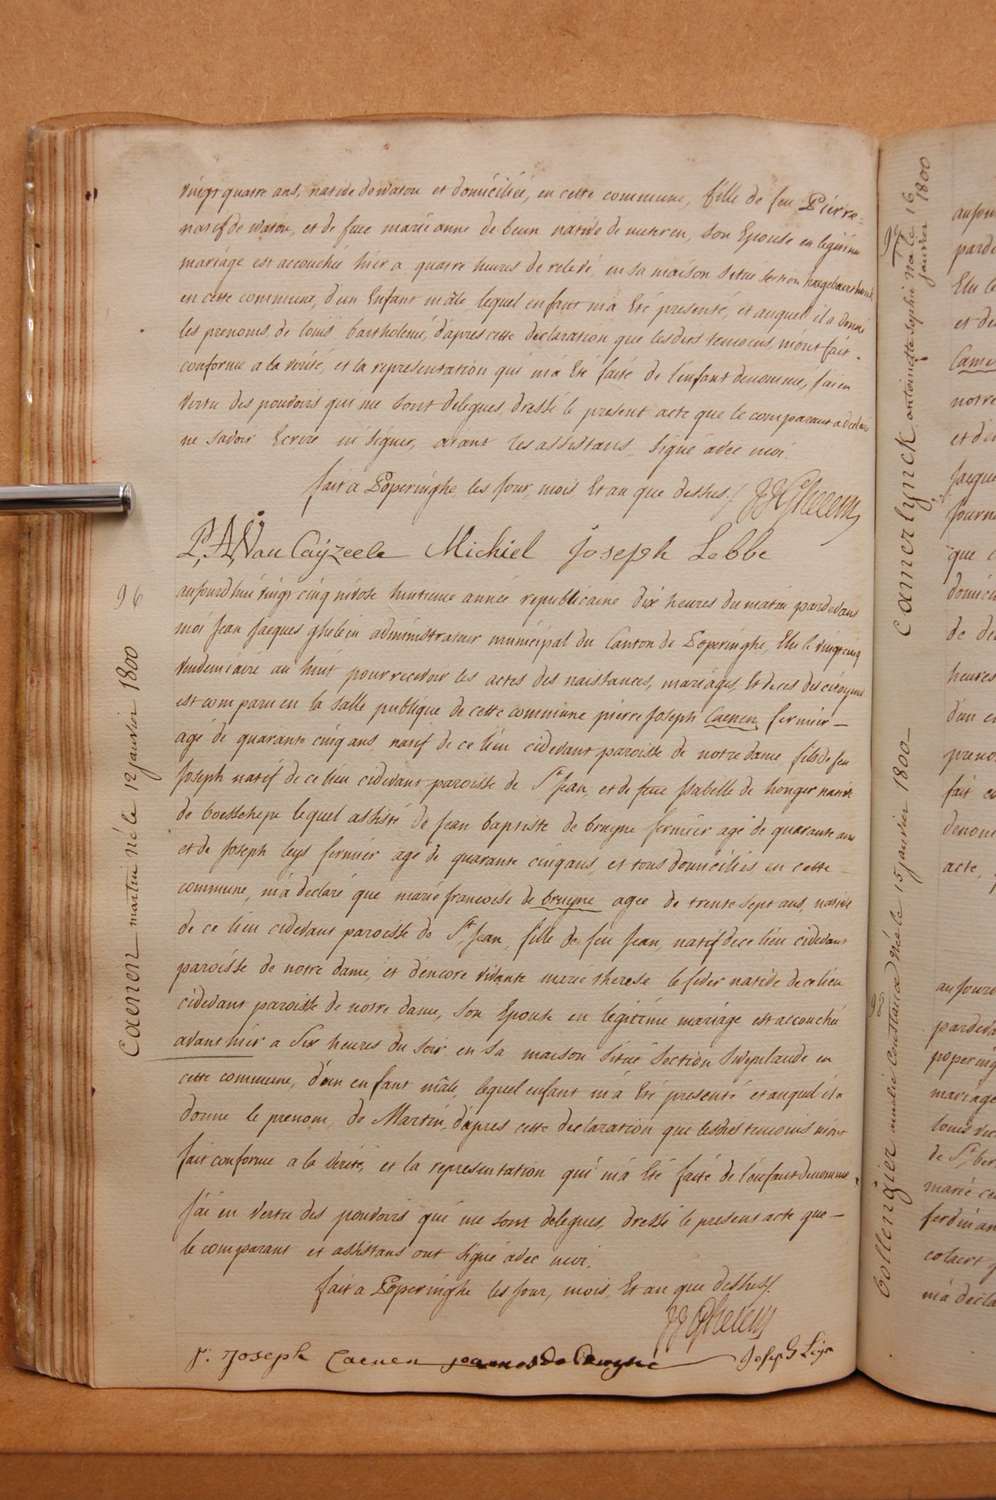 vingt quatre ans, native de watou et domiciliée, en cette commune, fille de feu Pierre
natif de watou, et de feue marie anne de beun native de meteren, son Epouse en legitime
mariage est accouchée hier a quatre heures de relevé, en sa maison située section
en cette commune, d'un Enfant mâle lequel enfant m'a Eté presenté, et auquel il a donné
les prenoms de louis bartholemé, d'apres cette declaration que lesdits temoins m'ont fait
conforme a la verité, et la representation qui m'a Eté faite de l'enfant denommé, j'ai en
vertu des pouvoirs qui me sont delegues, dressé le present acte que le comparant a declaré
ne savoir Ecrire ni signer, avant les assistans signé avec moi.
fait a Poperinghe, les jour, mois, Et an que dessus. JJGhelein
P. A. Van Caÿzeele Michiel Joseph Lebbe
96
aujourd'hui vingt cinq nivose huitieme année republicaine dix heures du matin pardevant
moi Jean Jacques ghelein administrateur municipal du Canton de Poperinghe, Elu le vingt cinq
vendemiaire an huit pour recevoir les actes des naissances, mariages, Et deces des citoyens
est comparu en la salle publique de cette commune pierre Joseph Caenen, fermier —
agé de quarante cinq ans natif de ce lieu cidevant paroisse de notre dame, fils de feu
Joseph natif de ce lieu cidevant paroisse de St. Jean, et de feue Isabelle de honger native
de boesschepe lequel assisté de Jean baptiste de bruyne fermier agé de quarante ans
et de Joseph leys fermier agé de quarante cinq ans, et tous domiciliés en cette
commune, m'a declaré que marie francoise de bruyne agée de trente sept ans, native
de ce lieu cidevant paroisse de St. Jean, fille de feu Jean, natif de ce lieu cidevant
paroisse de notre dame, et d'encore vivante marie therese le feber native de ce lieu
cidevant paroisse de notre dame, son Epouse en legitime mariage est accouchée
avant hier a Six heures du Soir en sa maison située Section Swynlande en
cette commune, d'un enfant mâle, lequel enfant m'a Eté presenté et auquel il a
donné le prenom, de Martin, d'apres cette declaration que lesdits temoins m'ont
fait conforme a la verité, et la representation qui m'a Eté faite de l'enfant denommé,
j'ai en vertu des pouvoirs qui me sont delegues, dressé le present acte que —
le comparant et assistans ont signé avec moi.
fait a Poperinghe les jour, mois, Et an que dessus.
JJGhelein
p. Joseph Caenen joannes de Bruyne Joseph Leijs
Caenen martin né le 12 janvier 1800
97
Camerlynck antoinette sophie née le 16 janvier 1800
98
Collengier Constance née le 15 janvier 1800
aujour
parde
Elu le
et de
Came
notre
et de
jacque
journ
que c
domici
de de
heures
d'un e
preno
fait co
denom
acte,
aujour
pardeva
poperin
mariage
louis
de St. ber
marie
ferdinan
colaert
m'a decla